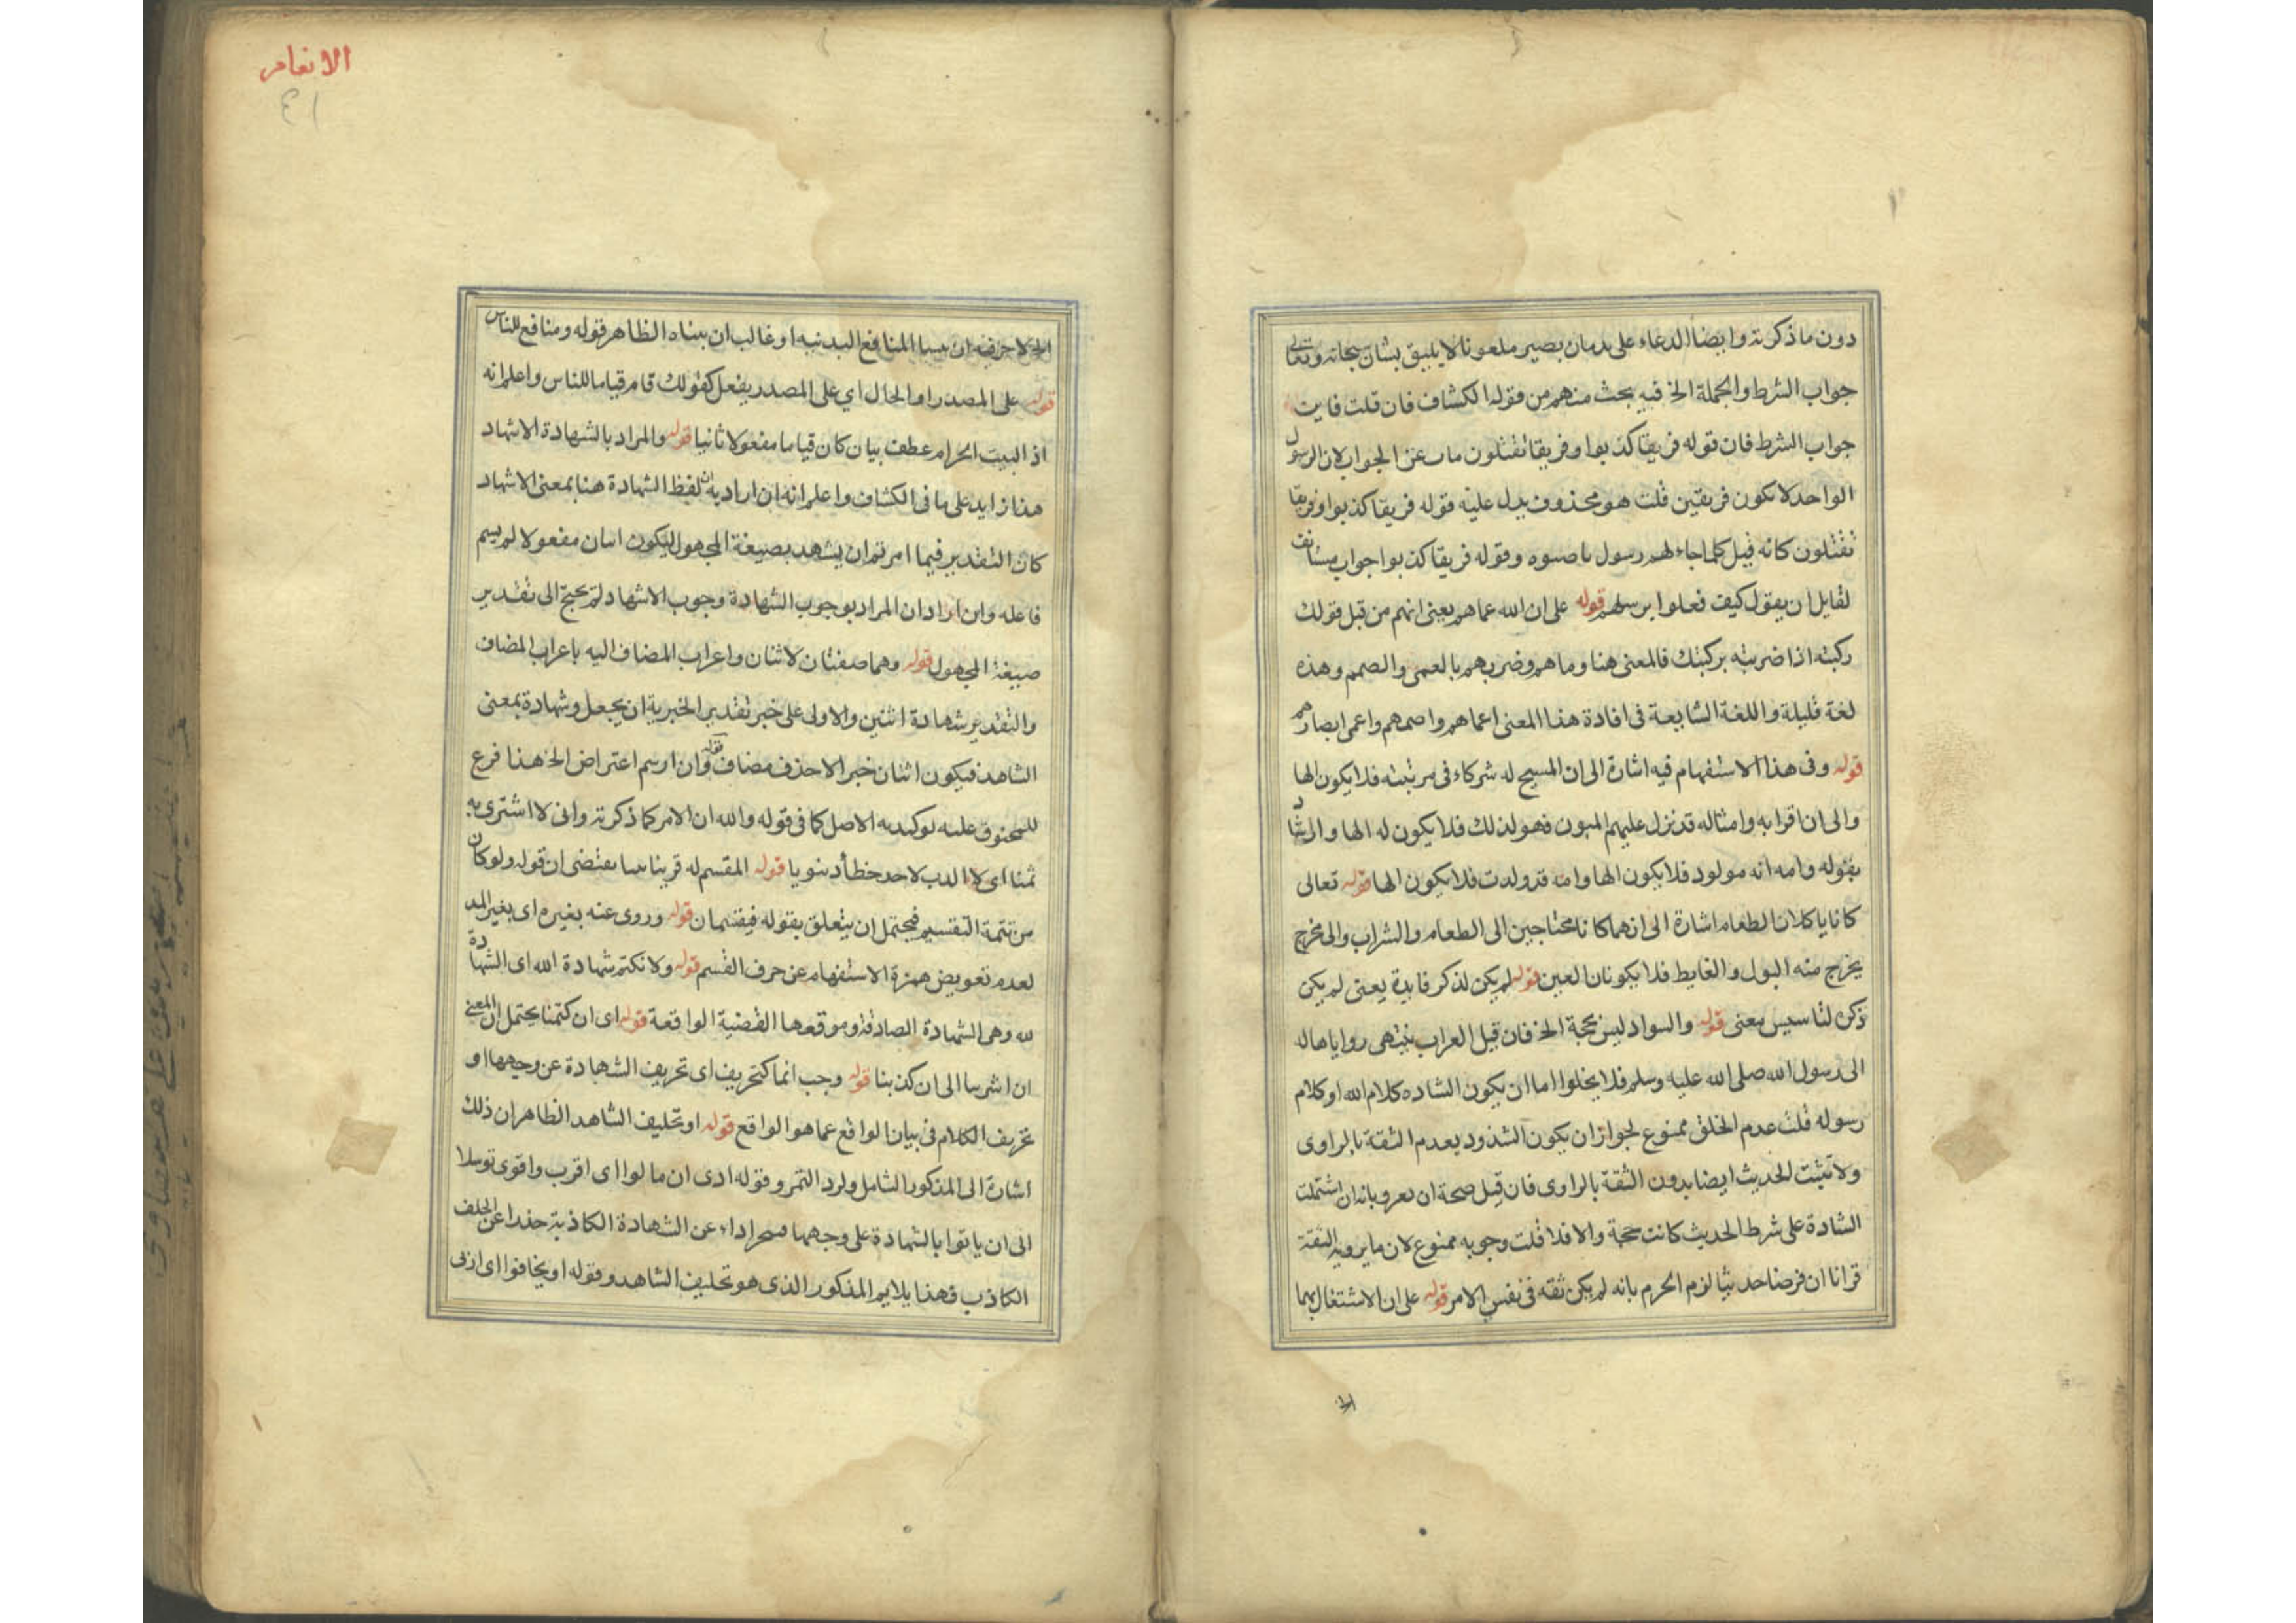 دون ما ذكرته وايضا الدعاء على بان يصير ملعونا لا يليق بشان سبحانه وتعالى
جواب الشرط والجملة الخ فيه بحث منهم من قوله الكشاف فان قلت فاين
جواب الشرط فان قوله فريقا كذبوا وفريقا تقتلون ناب عن الجواب لان الرسول
الواحد لا يكون فريقين قلت هو محذوف يدل عليه قوله فريقا كذبوا وفريقا
تقتلون كانه قيل كلما جاءهم رسول ناصبوه وقوله فريقا كذبوا جواب مستانف
لقايل ان يقول كيف فعلوا برسلهم قوله على ان الله عماهم يعنى انهم من قبل قولك
ركبته اذا ضربته بركبتك فالمعنى هنا وماهم وضربهم بالعمى والصمم وهذه
لغة قليلة واللغة الشايعة فى افادة هذا المعنى اعماهم واصمهم واعمى ابصارهم
قوله وفى هذا الاستفهام فيه اشارة الى ان المسيح له شركاء فى مرتبته فلا يكون الها
والى ان اقرابه وامثاله قد نزل عليهم المنون فهو لذلك فلا يكون له الها والرشاد
بقوله وامه انه مولود فلا يكون الها وامه قد ولدت فلا يكون الها قوله تعالى
كانا ياكلان الطعام اشارة الى انهما كانا محتاجين الى الطعام والشراب والى مخرج
يخرج منه البول والغايط فلا يكونان الهين قوله لم يكن لذكر فايدة يعنى لم يكن
ذكره لتاسيس معنى قوله والسواد ليس بحجة الخ فان قيل الغراب ينتهى رواياها له
الى رسول الله صلى الله عليه وسلم فلا يخلوا اما ان يكون الشاده كلام الله او كلام
رسوله قلت عدم الخلق ممنوع لجواز ان يكون الشذوذ بعدم الثقة بالراوى
ولا تثبت الحديث ايضا بدون الثقة بالراوى فان قيل صحة ان بعر وبانه ان اشتملت
الشادة على شرط الحديث كانت حجة والا فلا قلت وجوبه ممنوع لان ما يرويه الثقة
قرانا ان فرضنا حديثا لزم الحرم بانه لم يكن ثقه فى نفس الامر قوله على ان الاشتغال بما
الخ
الانعام
٤١
الخ لا حرفيه ان المنافع البدنيه او غالب ان بيناه الظاهر قوله ومنافع للناس
قوله على المصدر او الحال اي على المصدر يفعل كقولك قام قياما للناس واعلم انه
اذ البيت الحرام عطف بيان كان قياما مفعولا ثانيا قوله والمراد بالشهادة الاشهاد
هذا زايد على ما فى الكشاف واعلم انه ان اراد به ان لفظ الشهادة هنا بمعنى الاشهاد
كان التقدير فيما امرتم ان يشهد بصيغة المجهول ليكون اثنان مفعولا لم يسم
فاعله وان اراد ان المراد بوجوب الشهادة وجوب الاشهاد لم يحتج الى تقدير
صيغة المجهول قوله وهما صفتان لاثنان واعراب المضاف اليه باعراب المضاف
والتقدير شهادة اثنين والاولى على خبر تقدير الخبرية ان يجعل وشهادة بمعنى
الشاهد فيكون اثنان خبر الاحذف مضاف قوله وان ارتبتم اعتراض الخ هذا فرع
للمحنوق عليه توكيد به الاصل كما فى قوله والله ان الامر كما ذكرته وانى لا اشترى به
ثمنا اى لا لاحد حظا دنيويا قوله المقسم له قريبا منا يقتضى ان قوله ولو كان
من تتمة التقسيم فيحتمل ان يتعلق بقوله فيقسمان قوله وروى عنه بغيره اى بغير المد
لعدم تعويض همزة الاستفهام عن حرف القسم قوله ولا نكتم شهادة الله اى الشهادة
لله وهى الشهادة الصادقة وموقعها القضية الواقعة قوله اى ان كتمنا يحتمل ان المعنى
ان اشرنا الى ان كذبنا قوله وجب انما كتحريف اى تحريف الشهادة عن وجهها او
تحريف الكلام فى بيان الواقع عما هو الواقع قوله او تحليف الشاهد الظاهر ان ذلك
اشارة الى المذكور الشامل ولرد التمر وقوله ادى ان مالوا اى اقرب واقوى توسلا
الى ان ياتوا بالشهادة على وجهها اداء عن الشهادة الكاذبة حذرا عن الحلف
الكاذب فهذا يلايم المذكور الذى هو تحليف الشاهد وقوله او يخافوا اى ادنى